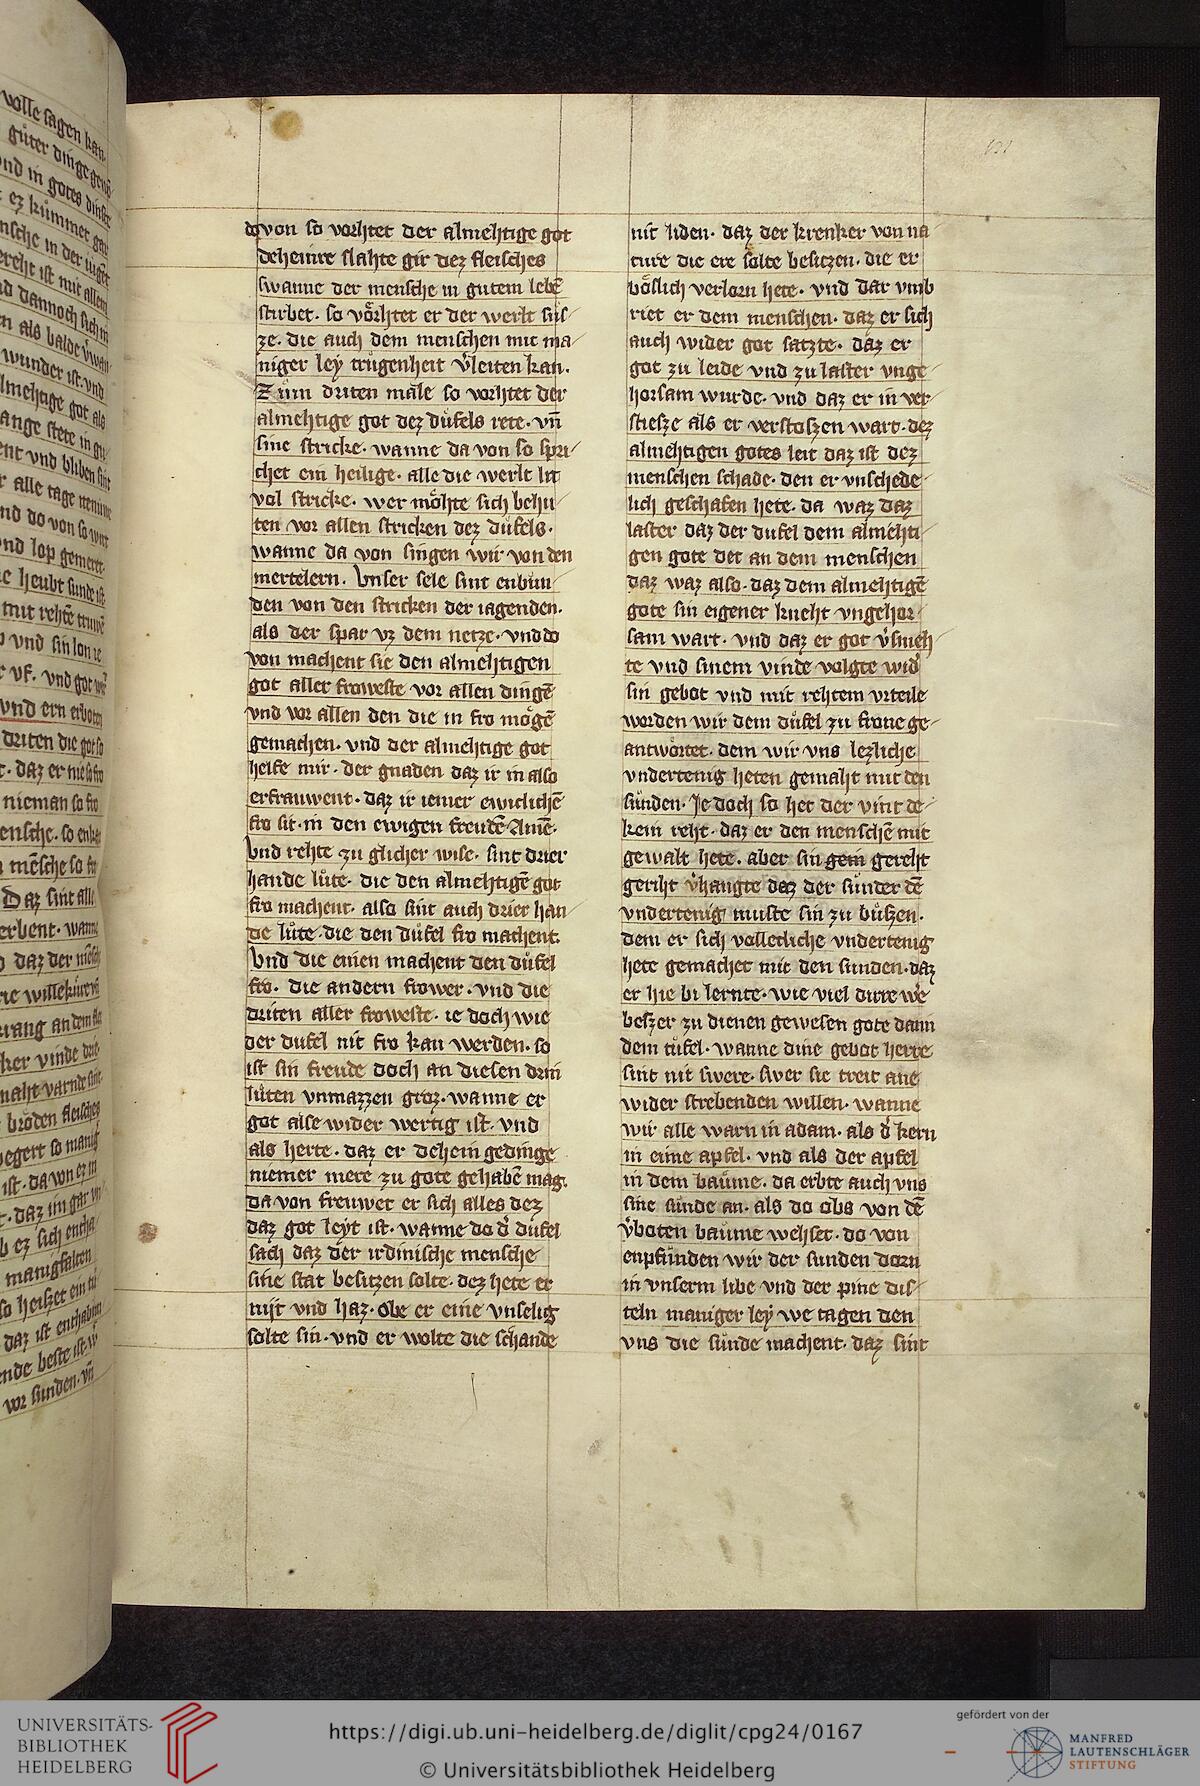 volle sagen kan.
guͦter dinge
und in gotes
ez kuͤmmet gar
mensche in der
ist mit allem
dannoch sich
als balde
wunder ist. vnd
almehtige got als
lange stete in
vnd bliben sint
alle tage
vnd do von so
vnd lop gemeret.
heubt sunde ist
mit rehtē
vnd sin lon ie
vf. vnd got
vnd ern erboten
driten die got so
daz er nie so fro
nieman so fro
mensche. so
mēsche so fro
Daz sint alle
erbent. wanne
daz der
an dem
vinde
broͤden fleisches
so manig
ist. da von er in
daz im gar
ez sich
manigfalten
so heiszet ein
daz ist
beste ist. w
vor sunden. vn̄
do von so vorhtet der almehtige got
deheinre slahte gir dez fleisches
swanne der mensche in gutem lebē
stirbet. so voͤrhtet er der werlt suͤs-
ze. die auch dem menschen mit ma-
niger ley truͤgenheit v͛leiten kan.
Zuͦm driten male so vorhtet der
almehtige got dez duͤfels rete. vn̄
sine stricke. wanne da von so spri-
chet ein heilige. alle die werlt lit
vol stricke. wer moͤhte sich behuͤ-
ten vor allen stricken dez duͤfels.
wanne da von singen wir von den
mertelern. Vnser sele sint enbun-
den von den stricken der iagenden.
als der spar vz dem netze. vnd do
von machent sie den almehtigen
got aller froweste vor allen dingē
vnd vor allen den die in fro moͤgē
gemachen. vnd der almehtige got
helfe mir. der gnaden daz ir in also
erfrauwent. daz ir iemer ewiclichē
fro sit. in den ewigen freudē Amē.
Vnd rehte zu glicher wise. sint drier
hande luͤte. die den almehtigē got
fro machent. also sint auch drier han-
de luͤte. die den duͤfel fro machent.
Vnd die einen machent den duͤfel
fro. die andern frower. vnd die
driten aller froweste. ie doch wie
der dufel nit fro kan werden. so
ist sin freude doch an diesen drin
luͤten vnmazzen groz. wanne er
got alse wider wertig ist. vnd
als herte. daz er dehein gedinge
niemer mere zu gote gehabē mag.
da von freuwet er sich alles dez
daz got leyt ist. wanne do d͛ dufel
sach daz der irdinische mensche
sine stat besitzen solte. dez hete er
nijt vnd haz. obe er eine vnselig
solte sin. vnd er wolte die schande
nit liden. daz der krenker von na-
ture die ere solte besitzen. die er
boͤslich verlorn hete. vnd dar vmb
riet er dem menschen. daz er sich
auch wider got satzte. daz er
got zu leide vnd zu laster vnge-
horsam wurde. vnd daz er in ver-
stiesze als er verstoszen wart. dez
almehtigen gotes leit daz ist dez
menschen schade. den er vnschede-
lich geschafen hete. da waz daz
laster daz der dufel dem almehti-
gen gote det an dem menschen
daz waz also. daz dem almehtigē
gote sin eigener kneht vngehor-
sam wart. vnd daz er got v͛smeh-
te vnd sinem vinde volgte wid͛
sin gebot vnd mit rehtem vrteile
worden wir dem duͤfel zu frone ge-
antwoͤrtet. dem wir vns lezliche
vndertenig heten gemaht mit den
suͤnden. Je doch so het der vint de-
kein reht. daz er den menschē mit
gewalt hete. aber sin gein gereht
geriht v͛hangte daz der suͤnder dē
vndertenig muste sin zu buͤszen.
dem er sich volleclliche vndertenig
hete gemachet mit den sunden. daz
er hie bi lernte. wie viel dirre we͛
beszer zu dienen gewesen gote dann
dem tuͤfel. wanne dine gebot herre
sint nit swere. swer sie treit ane
wider strebenden willen. wanne
wir alle warn in adam. als d͛ kern
in eime apfel. vnd als der apfel
in dem bauͤme. da erbte auch vns
sine suͤnde an. als do obs von dē
v͛boten bauͤme wehset. do von
enpfunden wir der sunden dorn
in vnserm libe vnd der pine dis-
teln maniger ley we tagen den
vns die suͤnde machent. daz sint
UNIVERSITÄTS-
BIBLIOTHEK
HEIDELBERG
https://digi.ub.uni-heidelberg.de/diglit/cpg24/0167
© Universitätsbibliothek Heidelberg
gefördert von der
MANFRED
LAUTENSCHLÄGER
STIFTUNG